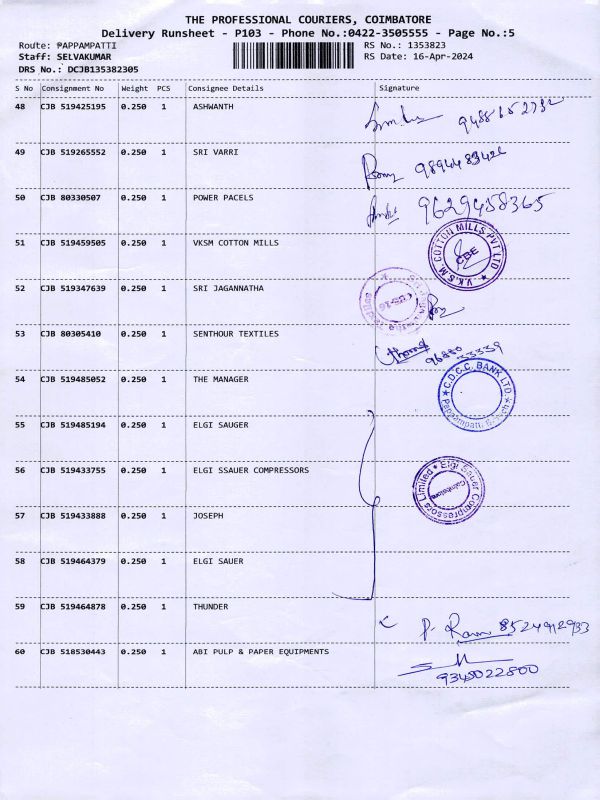 THE PROFESSIONAL COURIERS, COIMBATORE
Delivery Runsheet - P103 - Phone No.:0422-3505555 - Page No.:5
Route: PAPPAMPATTI RS No.: 1353823
Staff: SELVAKUMAR RS Date: 16-Apr-2024
DRS No.: DCJB135382305
S No Consignment No Weight PCS Consignee Details Signature
48 CJB 519425195 0.250 1 ASHWANTH
49 CJB 519265552 0.250 1 SRI VARRI
50 CJB 80330507 0.250 1 POWER PACELS 9629458365
51 CJB 519459505 0.250 1 VKSM COTTON MILLS
V.K.S.M. COTTON MILLS PVT LTD
CBE
52 CJB 519347639 0.250 1 SRI JAGANNATHA
53 CJB 80305410 0.250 1 SENTHOUR TEXTILES
54 CJB 519485052 0.250 1 THE MANAGER
C.D.C.C. BANK LTD.
Pappampatti Branch
55 CJB 519485194 0.250 1 ELGI SAUGER
56 CJB 519433755 0.250 1 ELGI SSAUER COMPRESSORS
Elgi Sauer Compressors Limited
Coimbatore
57 CJB 519433888 0.250 1 JOSEPH
58 CJB 519464379 0.250 1 ELGI SAUER
59 CJB 519464878 0.250 1 THUNDER
60 CJB 518530443 0.250 1 ABI PULP & PAPER EQUIPMENTS
9345022800